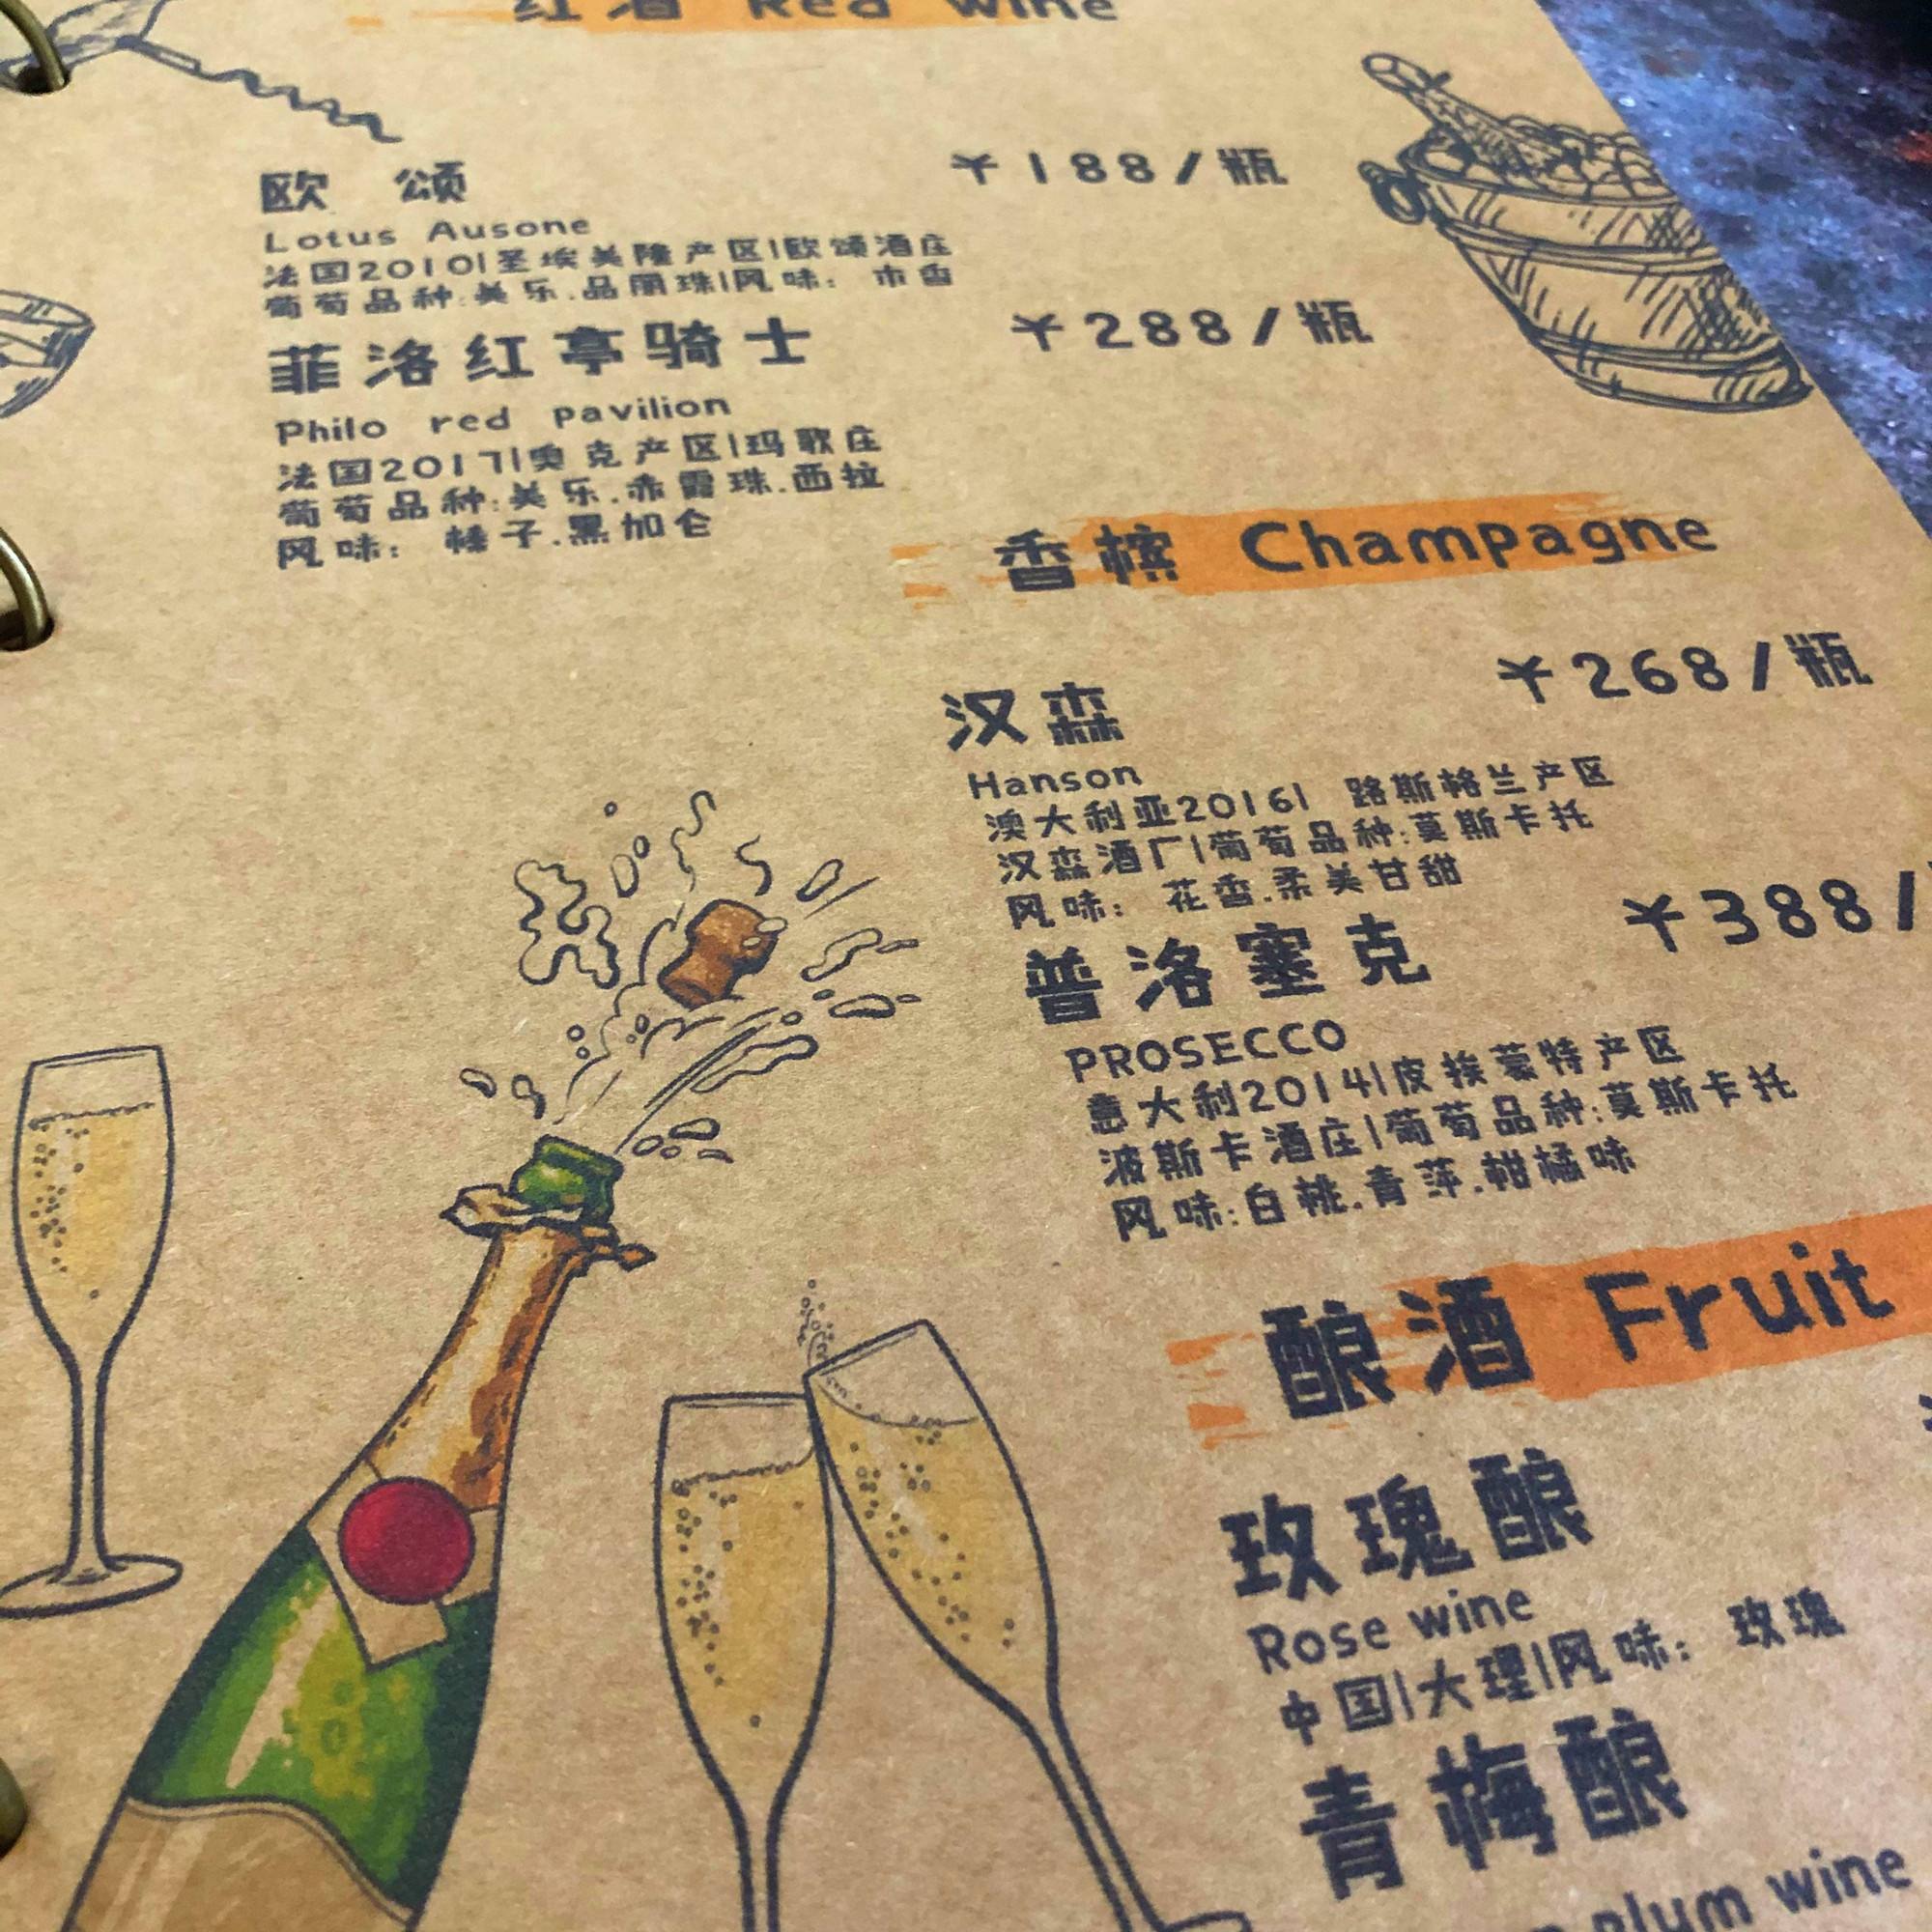 红酒 Red wine
欧 颂 ¥188/瓶
Lotus Ausone
法国2010|圣埃美隆产区|欧颂酒庄
葡萄品种:美乐.品丽珠|风味: 木香
菲洛红亭骑士 ¥288/瓶
Philo red pavilion
法国2017|奥克产区|玛歌庄
葡萄品种:美乐.赤霞珠.西拉
风味: 榛子.黑加仑
香槟 Champagne
汉森 ¥268/瓶
Hanson
澳大利亚2016| 路斯格兰产区
汉森酒厂|葡萄品种:莫斯卡托
风味: 花香.柔美甘甜
普洛塞克 ¥388/
PROSECCO
意大利2014|皮埃蒙特产区
波斯卡酒庄|葡萄品种:莫斯卡托
风味:白桃.青苹.柑橘味
酿酒 Fruit
玫瑰酿
Rose wine
中国|大理|风味: 玫瑰
青梅酿
plum wine